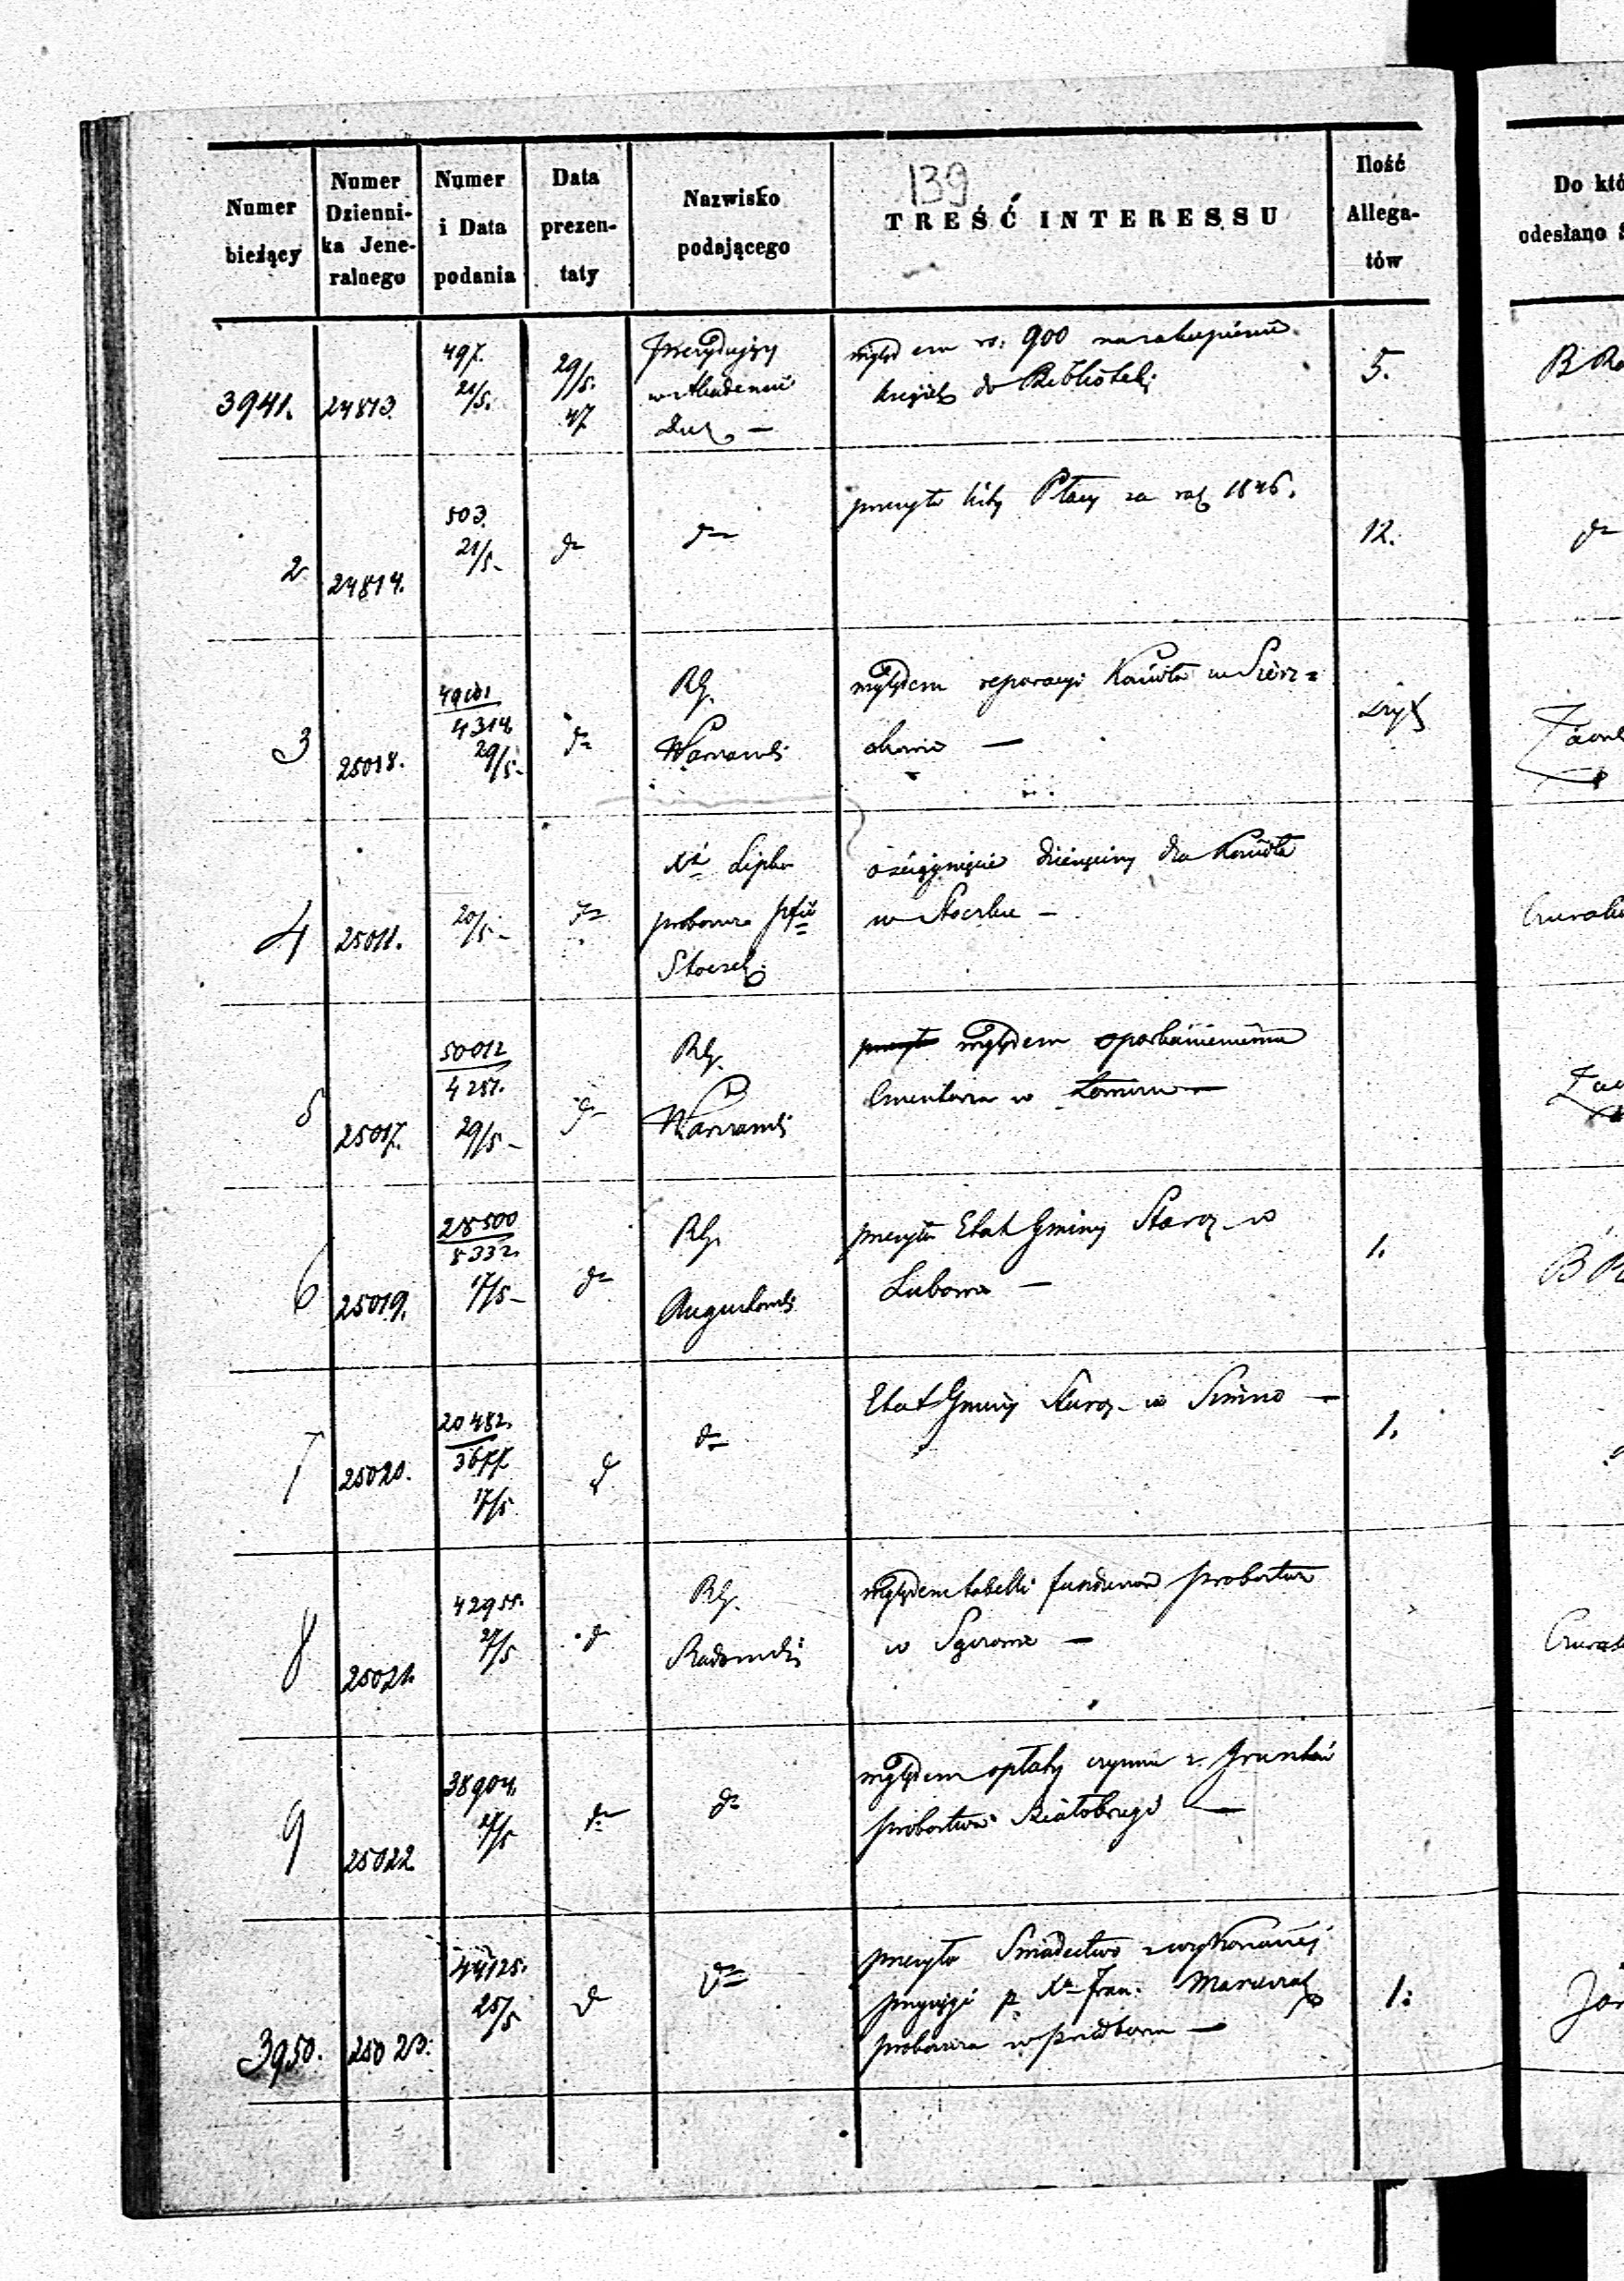 139
Numer bieżący
Numer Dzienni-
ka Jene-
ralnego
Numer
i Data
podania
Data
prezen-
taty
Nazwisko
podającego
TREŚĆ INTERESSU
Ilość
Allega-
tów
Do któ
odesłano
3941.
24813.
497.
21/5.
29/5.
47
Prezydujący
w Akademii
Duch
względem rs. 900 na zakupienie
książek do Biblioteki
5.
B
2
24814.
503.
21/5-
d
d
przesyła listy Płacy za rok 1846.
12.
d
3
25018.
4314.
29/5-
d
RG.
Warszawski
względem reparacyi Kościoła w
4
25011.
20/5-
d
Xd Lipka
proboszcz
Stoczek
o ściągnięcie dziesięciny dla Kościoła
w Stoczku -
5
25017.
50012
4257.
29/5-
d
RG.
Warszawski
względem oparkanienia
Cmentarza w
6
25019.
28500
8332.
17/5-
d
RG.
Augustowski
przesyła Etat Gminy Staroz. w
Lubowie -
1.
B
7
25020.
20482.
3677.
17/5
d
d
Etat Gminy Staroz. w Simno -
1.
8
25021.
42955.
27/5
d
RG.
Radomski
względem tabelli funduszów probostwa
w
9
25022
38904.
27/5
d
d
względem opłaty czynszu z Gruntów
probostwa Białobrzegi -
3950.
25023.
44125.
25/5
d
d
przesyła Świadectwo z wykonanej
przysięgi p. Xa Fran.
proboszcza w
1.